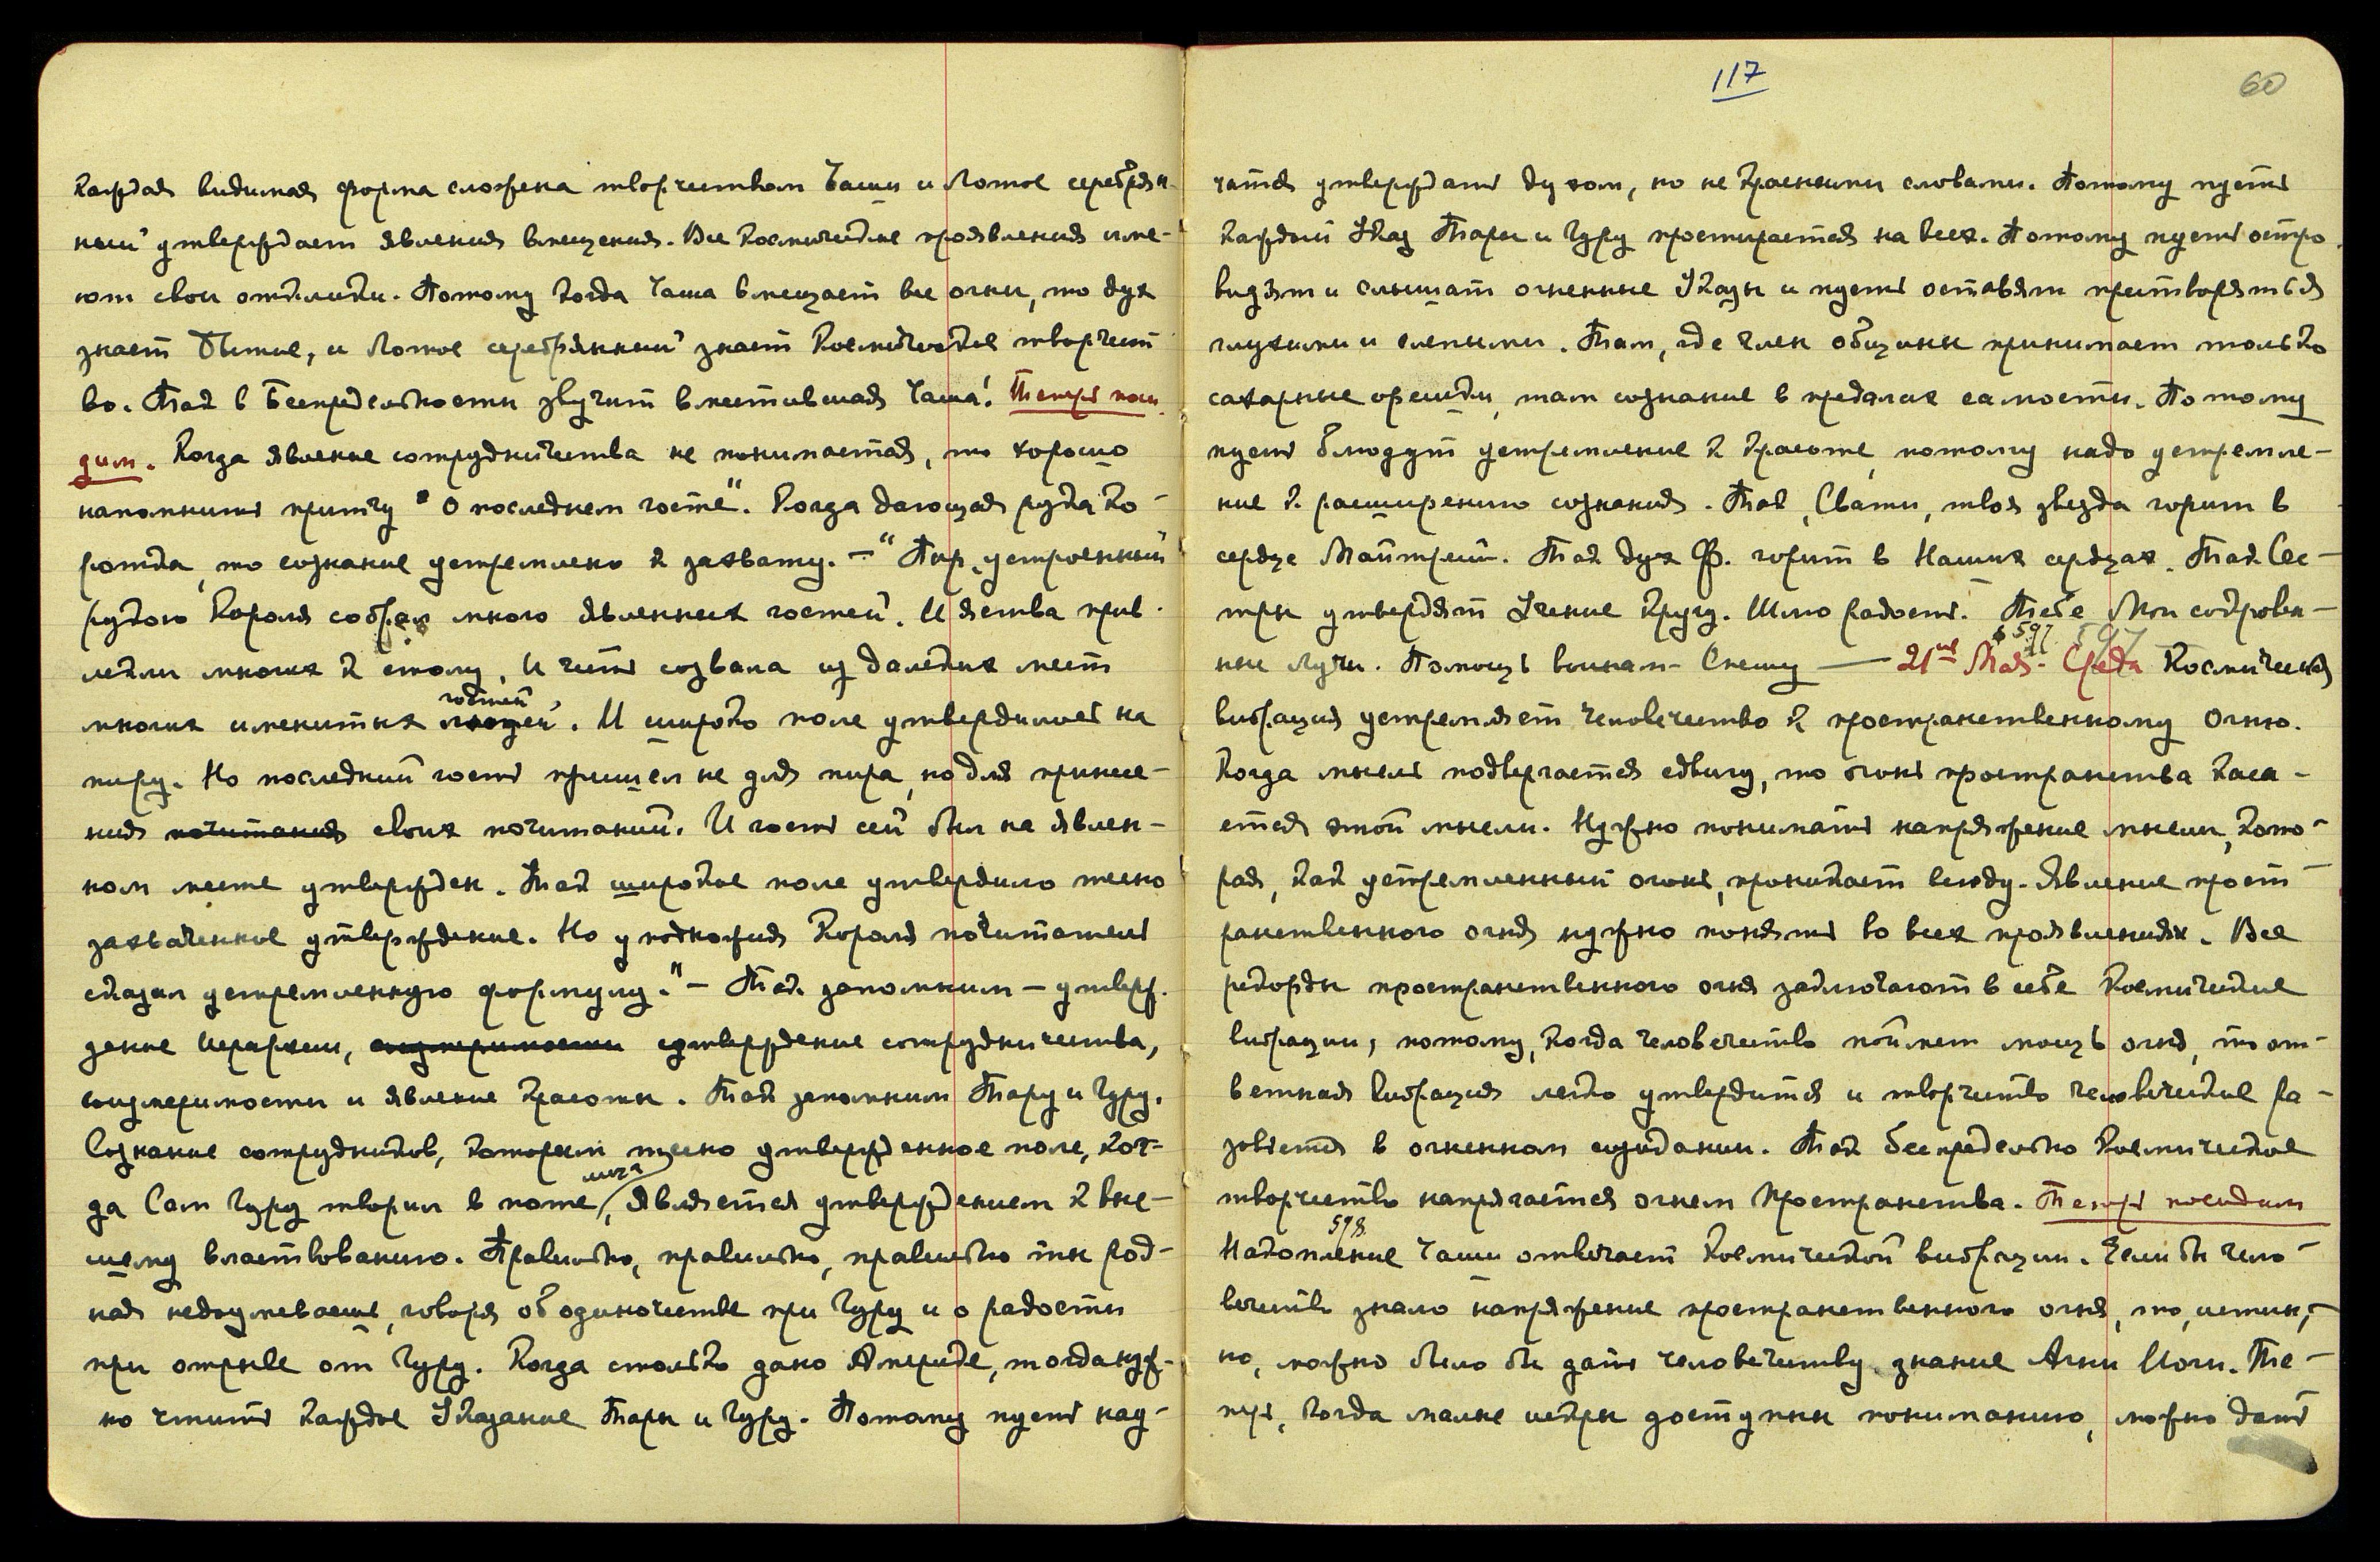 каждая видимая форма сложена творчеством Чаши и Лотос серебрян-
ный утверждает явления вмещения. Все космические проявления име-
ют свои отблески. Потому когда Чаша вмещает все огни, то дух
знает Бытие, и Лотос серебрянный знает Космическое творчест
во. Так в Беспредельности звучит вместившая Чаша! Теперь поси
дим. Когда явление сотрудничества не понимается, то хорошо
напомнить притчу "О последнем госте". Когда дающая рука ко-
ротка, то сознание устремлено к захвату. — "Пир, устроенный
рукою Короля собрал много явленных гостей. И яства прив
лекли многих к столу. И честь созвала из далеких мест
многих именитых гостей. И широко поле утвердилось на
пиру. Но последний гость пришел не для пира, но для прине-
ния почитания своих почитаний. И гость сей был на явлен-
ном месте утвержден. Так широкое поле утвердило тесно
захваченное утверждение. Но у подножия Короля почитатель
сказал устремленную формулу." — Так запомним — утверж.
дение Иерархии, соизмеримости утверждение сотрудничества,
соизмеримости и явление красоты. Так запомним Тару и Гуру.
Сознание сотрудников, которым тесно утвержденное поле, ког-
да Сам Гуру творил в поте лица, является утверждением к вне-
шнему властвованию. Правильно, правильно, правильно ты род-
ная недоумеваешь, говоря об одиночестве при Гуру и о радости
при отрыве от Гуру. Когда столько дано Америке, тогда нуж-
но чтить каждое Указание Тары и Гуру. Потому пусть нау-
117
60
чатся утверждать духом, но не красными словами. Потому пусть
каждый Указ Тары и Гуру простирается на всех. Потому пусть остро
видят и слышат огненные Указы и пусть оставят претворяться
глухими и слепыми. Там, где член общины принимает только
сахарные орешки, там сознание в пределах самости. Потому
пусть блюдут устремление к красоте, потому надо устремле-
ние к расширению сознания. Так, Свати, твоя звезда горит в
сердце Майтрейи. Так дух Ф. горит в Наших сердцах. Так Сес-
тры утвердят Учение Кругу. Шлю радость. Тебе Мои сокровен-
ные лучи. Помощь воинам — Спешу — 21ое Мая — Среда Космическая
§ 597 597
вибрация устремляет человечество к пространственному Огню.
Когда мысль подвергается сдвигу, то огонь пространства каса-
ется этой мысли. Нужно понимать напряжение мысли, кото-
рая, как устремленный огонь, проникает всюду. Явление прост-
ранственного огня нужно понять во всех проявлениях. Все
рекорды пространственного огня заключают в себе Космические
вибрации, потому, когда человечество поймет мощь огня, то от-
ветная вибрация легко утвердится и творчество человеческое ра-
зовьется в огненном созидании. Так беспредельно Космическое
творчество напрягается огнем Пространства. Теперь посидим
598
Накопление Чаши отвечает Космической вибрации. Если бы чело-
вечество знало напряжение пространственного огня, то, истин-
но, можно было бы дать человечеству знание Агни Йоги. Те-
перь, когда малые искры доступны пониманию, можно дать